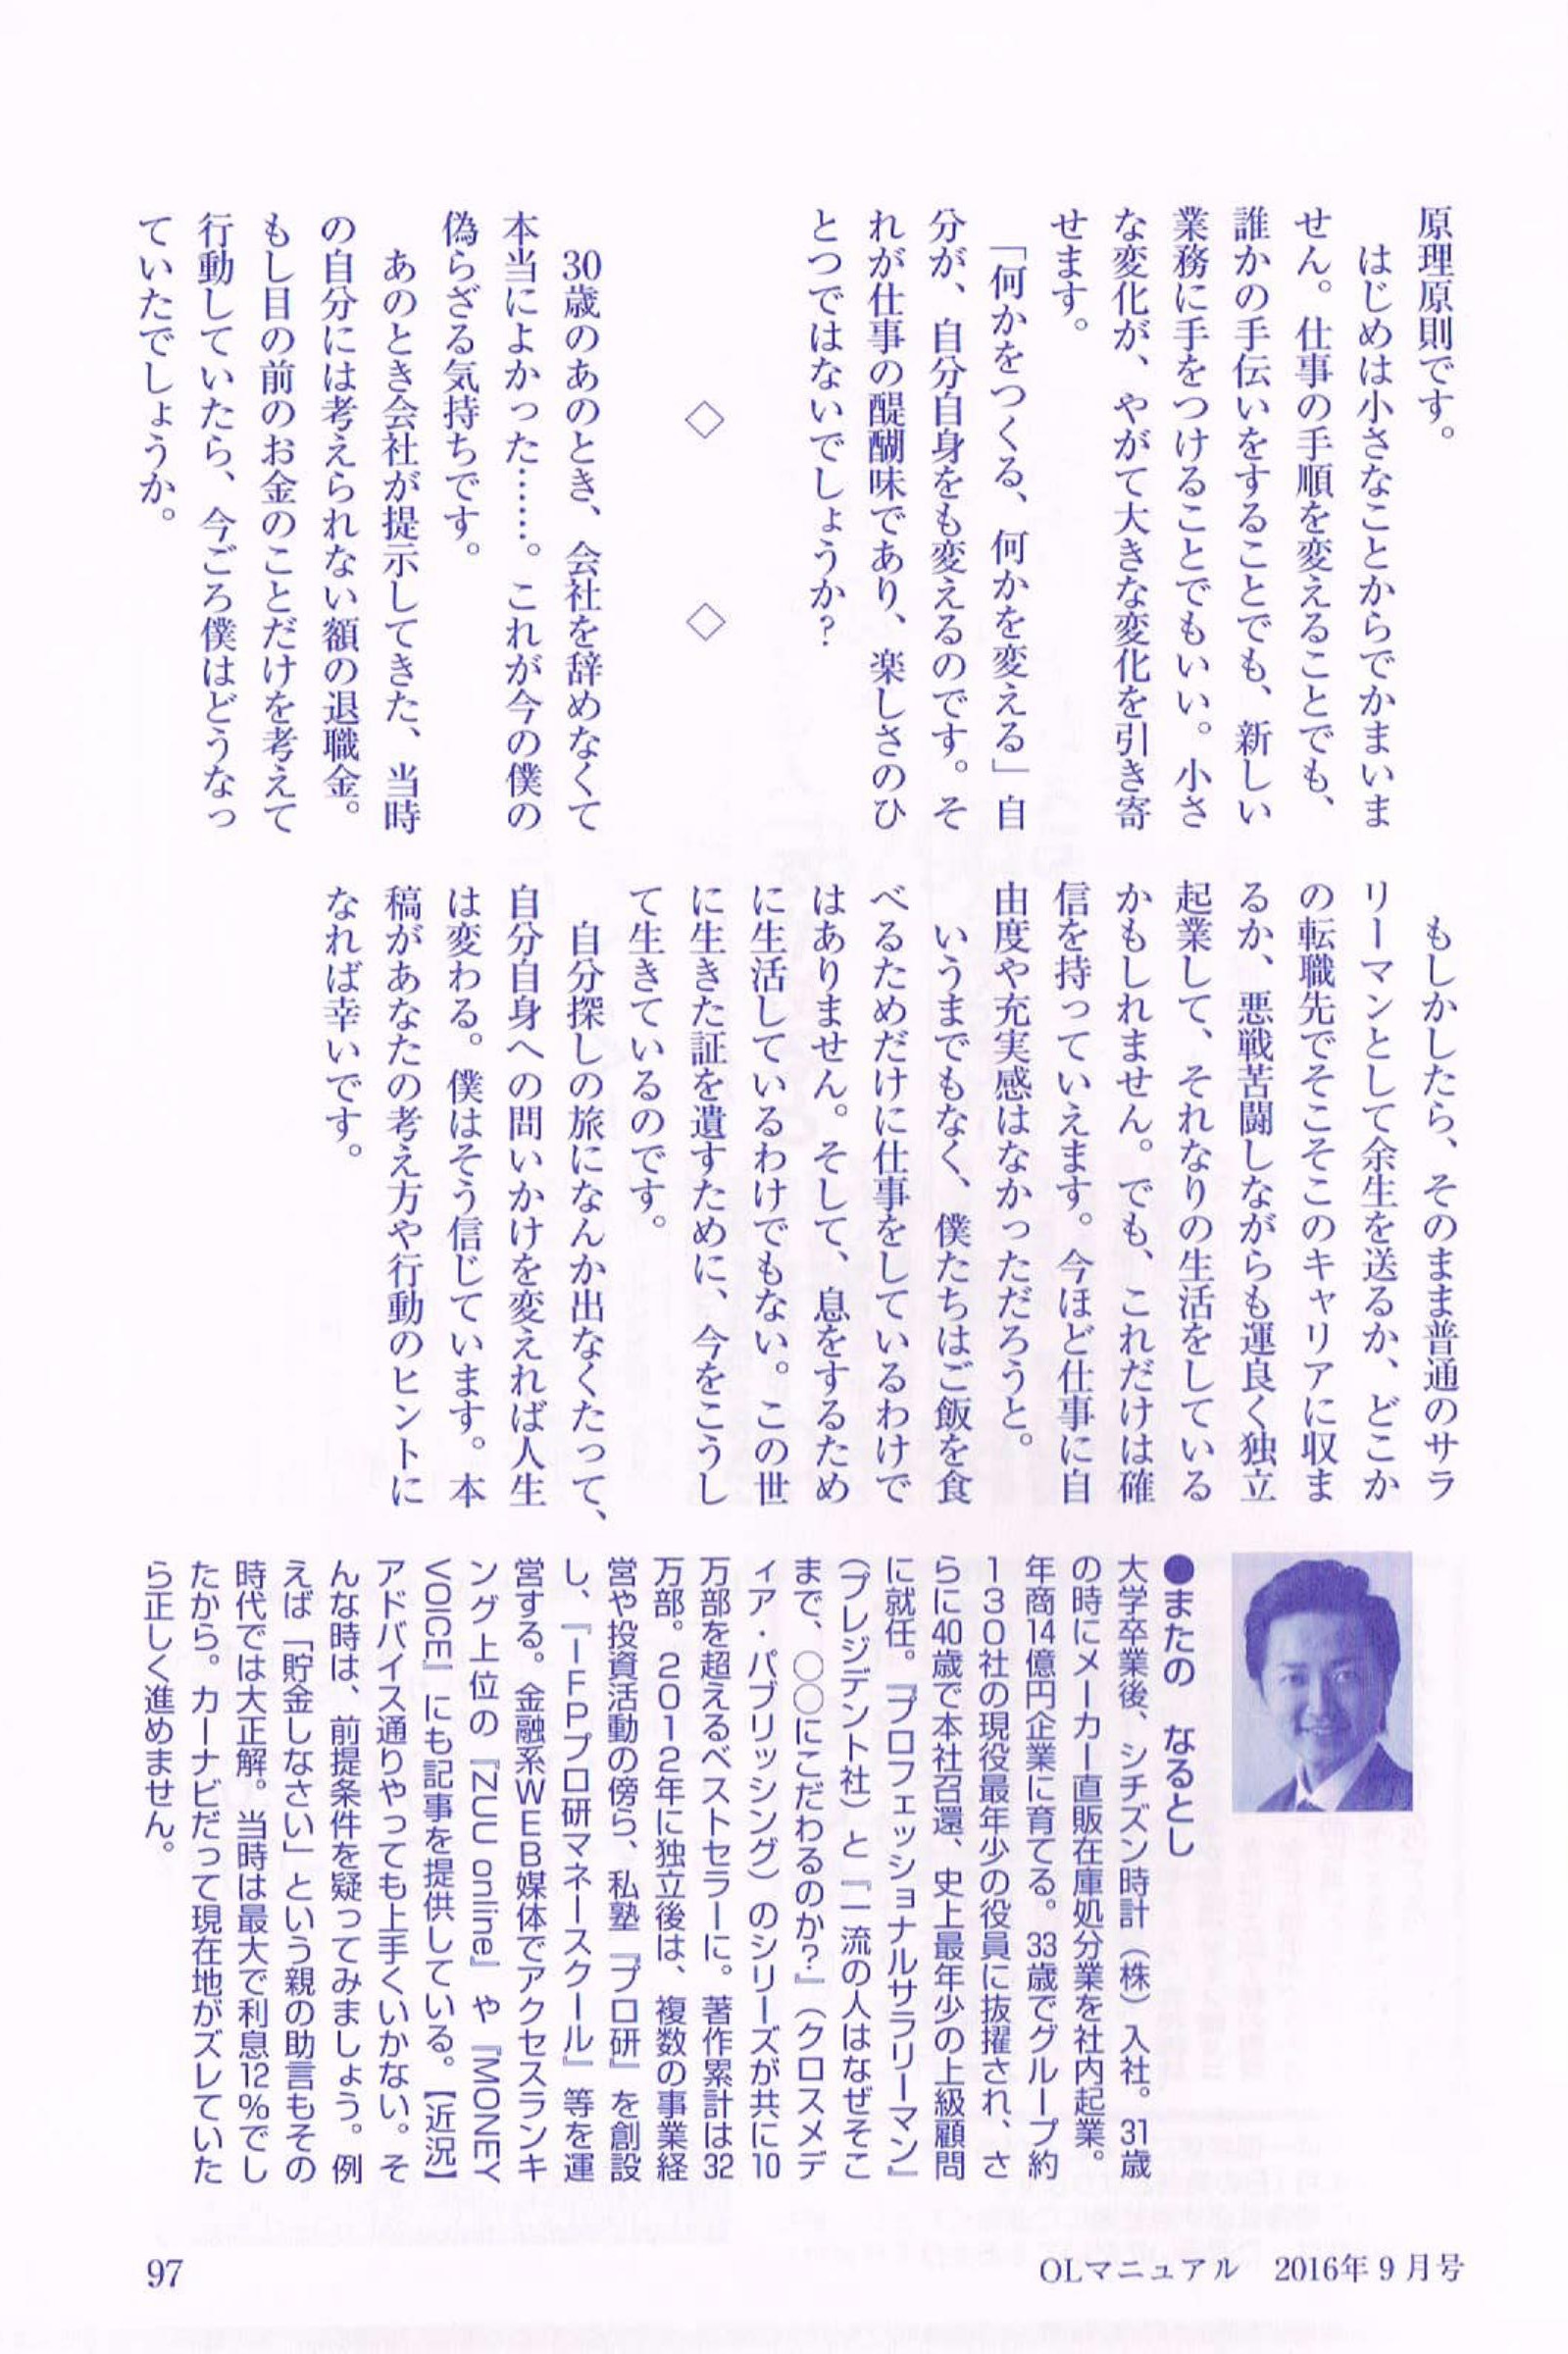 原理原則です。
　はじめは小さなことからでかまいま
せん。仕事の手順を変えることでも、
誰かの手伝いをすることでも、新しい
業務に手をつけることでもいい。小さ
な変化が、やがて大きな変化を引き寄
せます。
　「何かをつくる、何かを変える」自
分が、自分自身をも変えるのです。そ
れが仕事の醍醐味であり、楽しさのひ
とつではないでしょうか？
◇　◇
　30歳のあのとき、会社を辞めなくて
本当によかった……。これが今の僕の
偽らざる気持ちです。
　あのとき会社が提示してきた、当時
の自分には考えられない額の退職金。
もし目の前のお金のことだけを考えて
行動していたら、今ごろ僕はどうなっ
ていたでしょうか。
　もしかしたら、そのまま普通のサラ
リーマンとして余生を送るか、どこか
の転職先でそこそこのキャリアに収ま
るか、悪戦苦闘しながらも運良く独立
起業して、それなりの生活をしている
かもしれません。でも、これだけは確
信を持っていえます。今ほど仕事に自
由度や充実感はなかっただろうと。
　いうまでもなく、僕たちはご飯を食
べるためだけに仕事をしているわけで
はありません。そして、息をするため
に生活しているわけでもない。この世
に生きた証を遺すために、今をこうし
て生きているのです。
　自分探しの旅になんか出なくたって、
自分自身への問いかけを変えれば人生
は変わる。僕はそう信じています。本
稿があなたの考え方や行動のヒントに
なれば幸いです。
●またの　なるとし
大学卒業後、シチズン時計（株）入社。31歳
の時にメーカー直販在庫処分業を社内起業。
年商14億円企業に育てる。33歳でグループ約
130社の現役最年少の役員に抜擢され、さ
らに40歳で本社召還、史上最年少の上級顧問
に就任。『プロフェッショナルサラリーマン』
（プレジデント社）と『一流の人はなぜそこ
まで、○○にこだわるのか？』（クロスメデ
ィア・パブリッシング）のシリーズが共に10
万部を超えるベストセラーに。著作累計は32
万部。2012年に独立後は、複数の事業経
営や投資活動の傍ら、私塾『プロ研』を創設
し、『IFPプロ研マネースクール』等を運
営する。金融系WEB媒体でアクセスランキ
ング上位の『ZUU online』や『MONEY
VOICE』にも記事を提供している。【近況】
アドバイス通りやっても上手くいかない。そ
んな時は、前提条件を疑ってみましょう。例
えば「貯金しなさい」という親の助言もその
時代では大正解。当時は最大で利息12％でし
たから。カーナビだって現在地がズレていた
ら正しく進めません。
97
OLマニュアル　2016年9月号